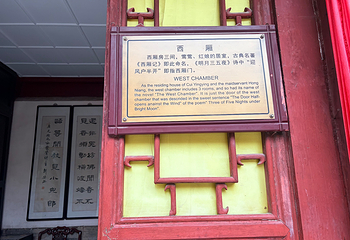 西厢
西厢房三间，莺莺、红娘的居室，古典名著
《西厢记》即此命名，《明月三五夜》诗中"迎
风户半开"即指西厢门。
WEST CHAMBER
As the residing house of Cui Yingying and the maidservant Hong
Niang, the west chamber includes 3 rooms, and so had its name of
the novel "The West Chamber". It is just the door of the west
chamber that was described in the sweet sentence "The Door Half-
opens against the Wind" of the poem" Three of Five Nights under
Bright Moon".